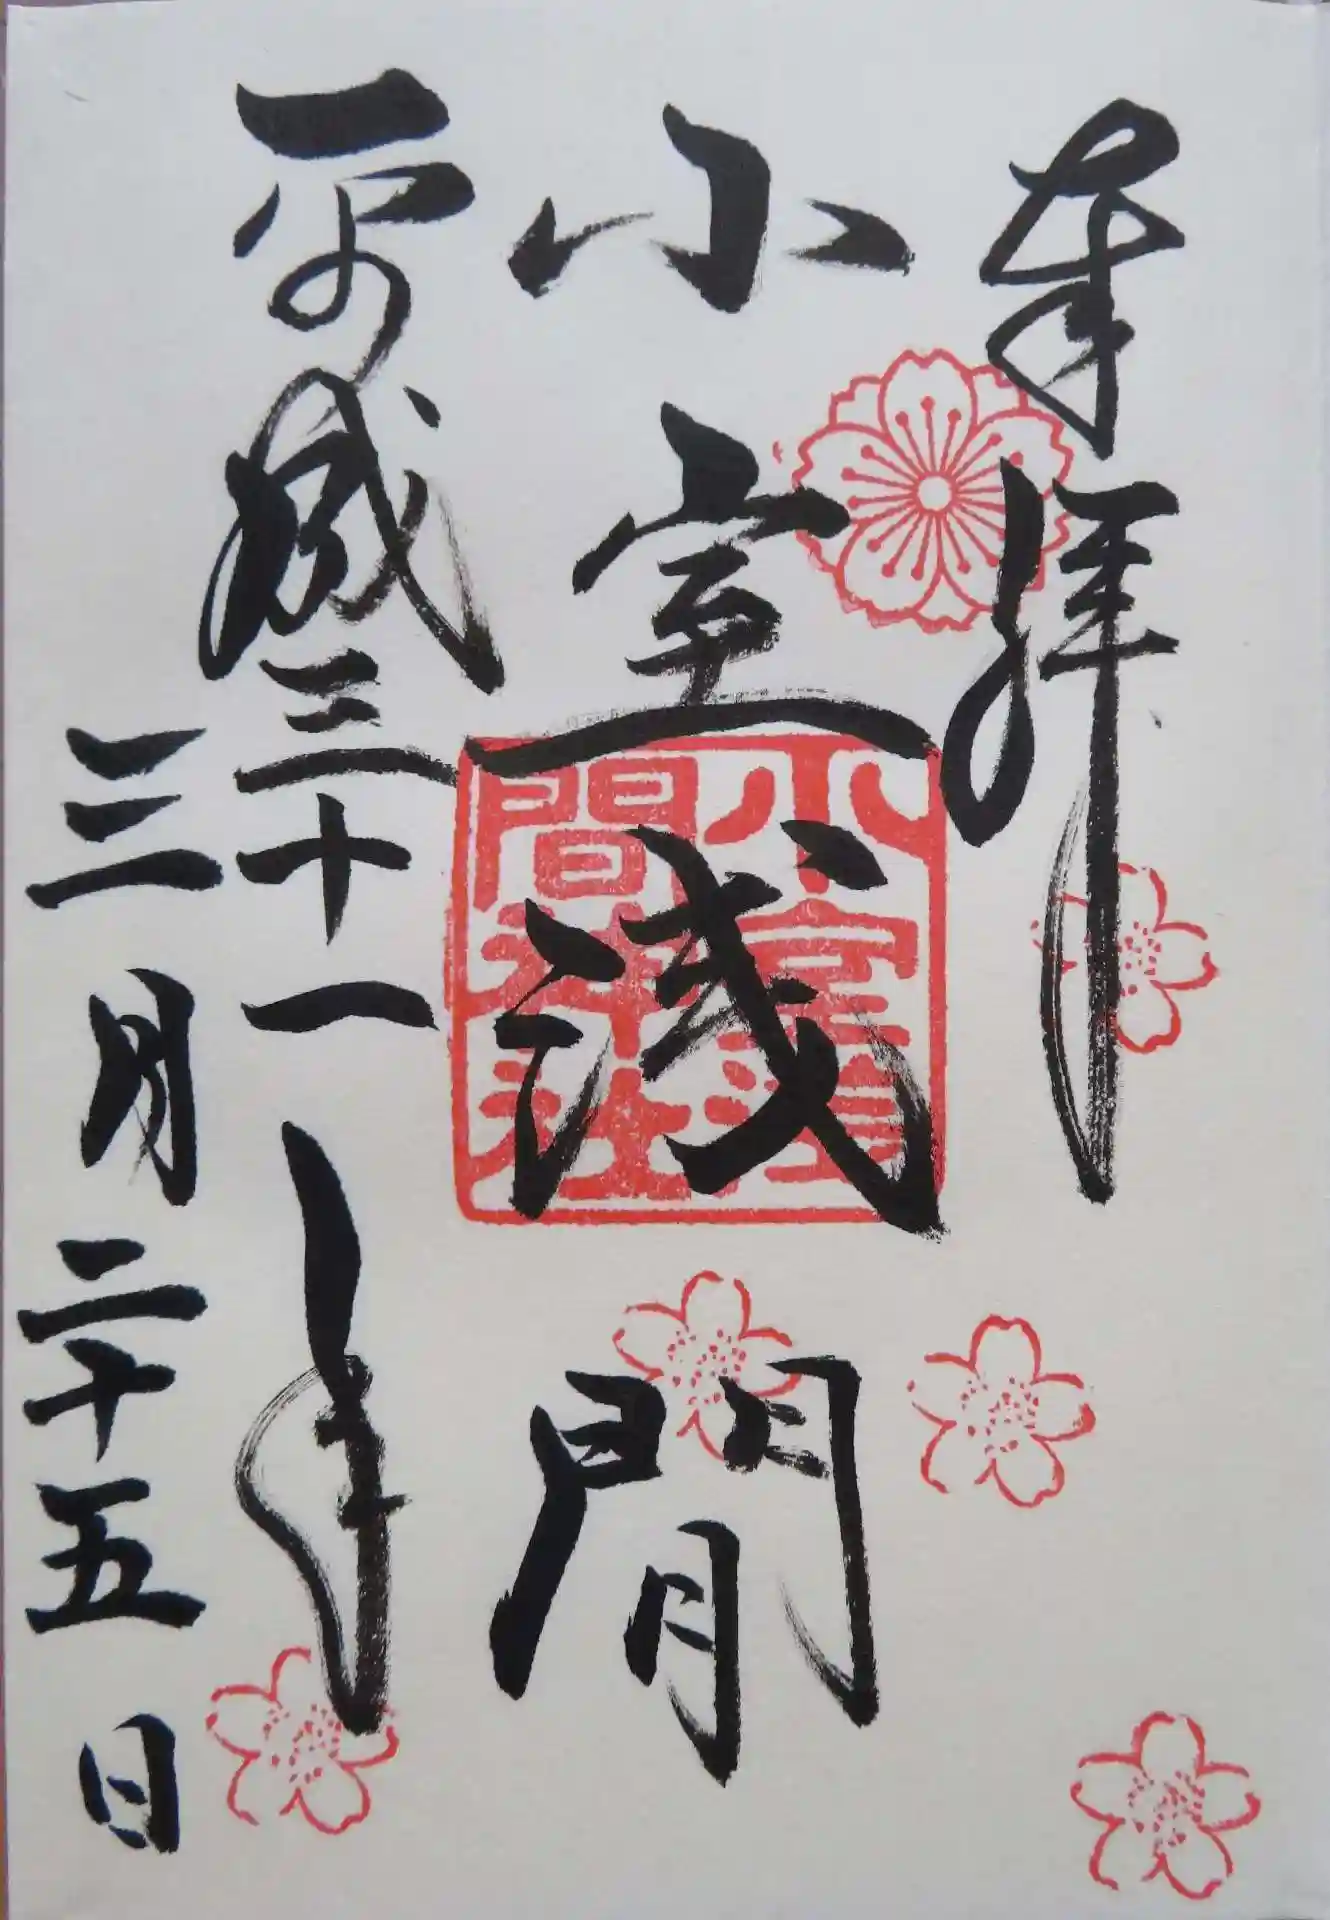 奉拝
小室浅間
平成三十一年
三月二十五日
小室浅間神社